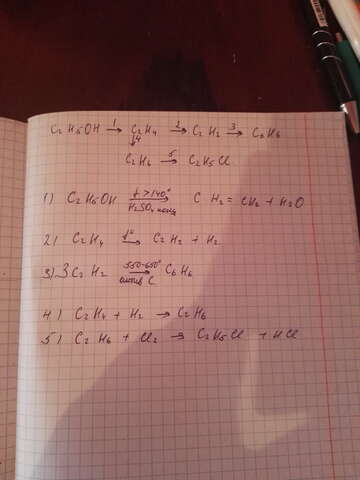 C2H5OH →1 C2H4 →2 C2H2 →3 C6H6
↓4
C2H6 →5 C2H5Cl
1) C2H5OH t>140° → H2SO4 конц CH2 = CH2 + H2O
2) C2H4 t° → C2H2 + H2
3) 3C2H2 550-650° → актив C C6H6
4) C2H4 + H2 → C2H6
5) C2H6 + Cl2 → C2H5Cl + HCl